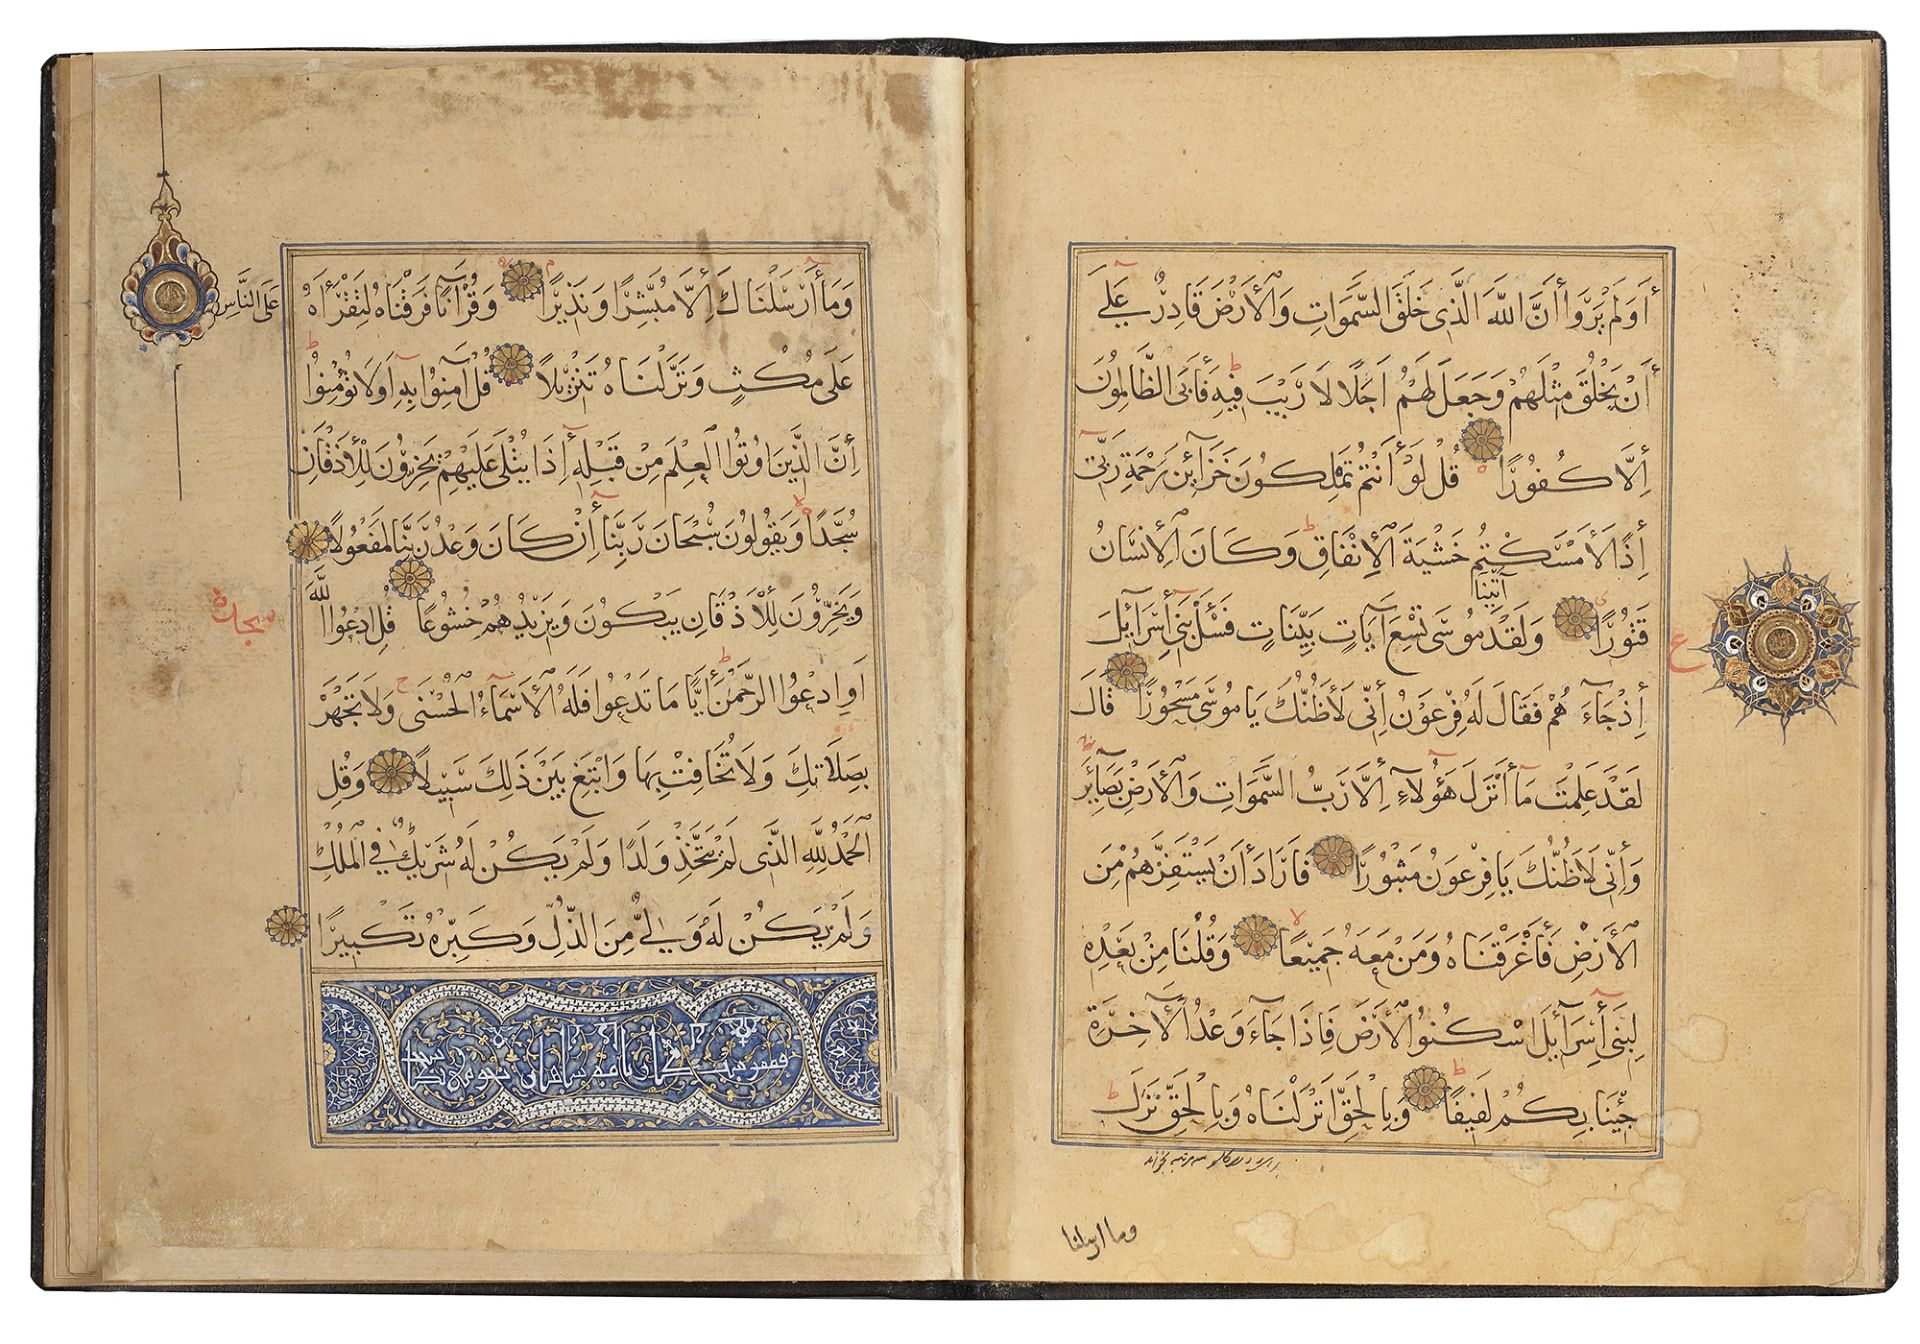 أَوَلَمْ يَرَوْا أَنَّ اللَّهَ الَّذِي خَلَقَ السَّمَوَاتِ وَالْأَرْضَ قَادِرٌ عَلَى
أَنْ يَخْلُقَ مِثْلَهُمْ وَجَعَلَ لَهُمْ أَجَلًا لَا رَيْبَ فِيهِ فَأَبَى الظَّالِمُونَ
إِلَّا كُفُورًا قُلْ لَوْ أَنْتُمْ تَمْلِكُونَ خَزَآئِنَ رَحْمَةِ رَبِّي
إِذًا لَأَمْسَكْتُمْ خَشْيَةَ الْإِنْفَاقِ وَكَانَ الْإِنْسَانُ
آتَيْنَا
قَتُورًا وَلَقَدْ مُوسَى تِسْعَ آيَاتٍ بَيِّنَاتٍ فَسْئَلْ بَنِي إِسْرَآئِيلَ
ع
إِذْ جَآءَهُمْ فَقَالَ لَهُ فِرْعَوْنُ إِنِّي لَأَظُنُّكَ يَا مُوسَى مَسْحُورًا قَالَ
لَقَدْ عَلِمْتَ مَآ أَنْزَلَ هَؤُلَآءِ إِلَّا رَبُّ السَّمَوَاتِ وَالْأَرْضِ بَصَآئِرَ
وَإِنِّي لَأَظُنُّكَ يَا فِرْعَوْنُ مَثْبُورًا فَأَرَادَ أَنْ يَسْتَفِزَّهُمْ مِنَ
الْأَرْضِ فَأَغْرَقْنَاهُ وَمَنْ مَعَهُ جَمِيعًا وَقُلْنَا مِنْ بَعْدِهِ
لِبَنِي إِسْرَآئِيلَ اسْكُنُوا الْأَرْضَ فَإِذَا جَآءَ وَعْدُ الْآخِرَةِ
جِئْنَا بِكُمْ لَفِيفًا وَبِالْحَقِّ أَنْزَلْنَاهُ وَبِالْحَقِّ نَزَلَ
وما ارسلنا
وَمَآ أَرْسَلْنَاكَ إِلَّا مُبَشِّرًا وَنَذِيرًا وَقُرْآنًا فَرَقْنَاهُ لِتَقْرَأَهُ
عَلَى النَّاسِ
عَلَى مُكْثٍ وَنَزَّلْنَاهُ تَنْزِيلًا قُلْ آمِنُوا بِهِ أَوْ لَا تُؤْمِنُوا
إِنَّ الَّذِينَ أُوتُوا الْعِلْمَ مِنْ قَبْلِهِ إِذَا يُتْلَى عَلَيْهِمْ يَخِرُّونَ لِلْأَذْقَانِ
سُجَّدًا وَيَقُولُونَ سُبْحَانَ رَبِّنَا إِنْ كَانَ وَعْدُ رَبِّنَا لَمَفْعُولًا
وَيَخِرُّونَ لِلْأَذْقَانِ يَبْكُونَ وَيَزِيدُهُمْ خُشُوعًا قُلِ ادْعُوا اللَّهَ
أَوِ ادْعُوا الرَّحْمَنَ أَيًّا مَا تَدْعُوا فَلَهُ الْأَسْمَآءُ الْحُسْنَى وَلَا تَجْهَرْ
بِصَلَاتِكَ وَلَا تُخَافِتْ بِهَا وَابْتَغِ بَيْنَ ذَلِكَ سَبِيلًا وَقُلِ
الْحَمْدُ لِلَّهِ الَّذِي لَمْ يَتَّخِذْ وَلَدًا وَلَمْ يَكُنْ لَهُ شَرِيكٌ فِي الْمُلْكِ
وَلَمْ يَكُنْ لَهُ وَلِيٌّ مِنَ الذُّلِّ وَكَبِّرْهُ تَكْبِيرًا